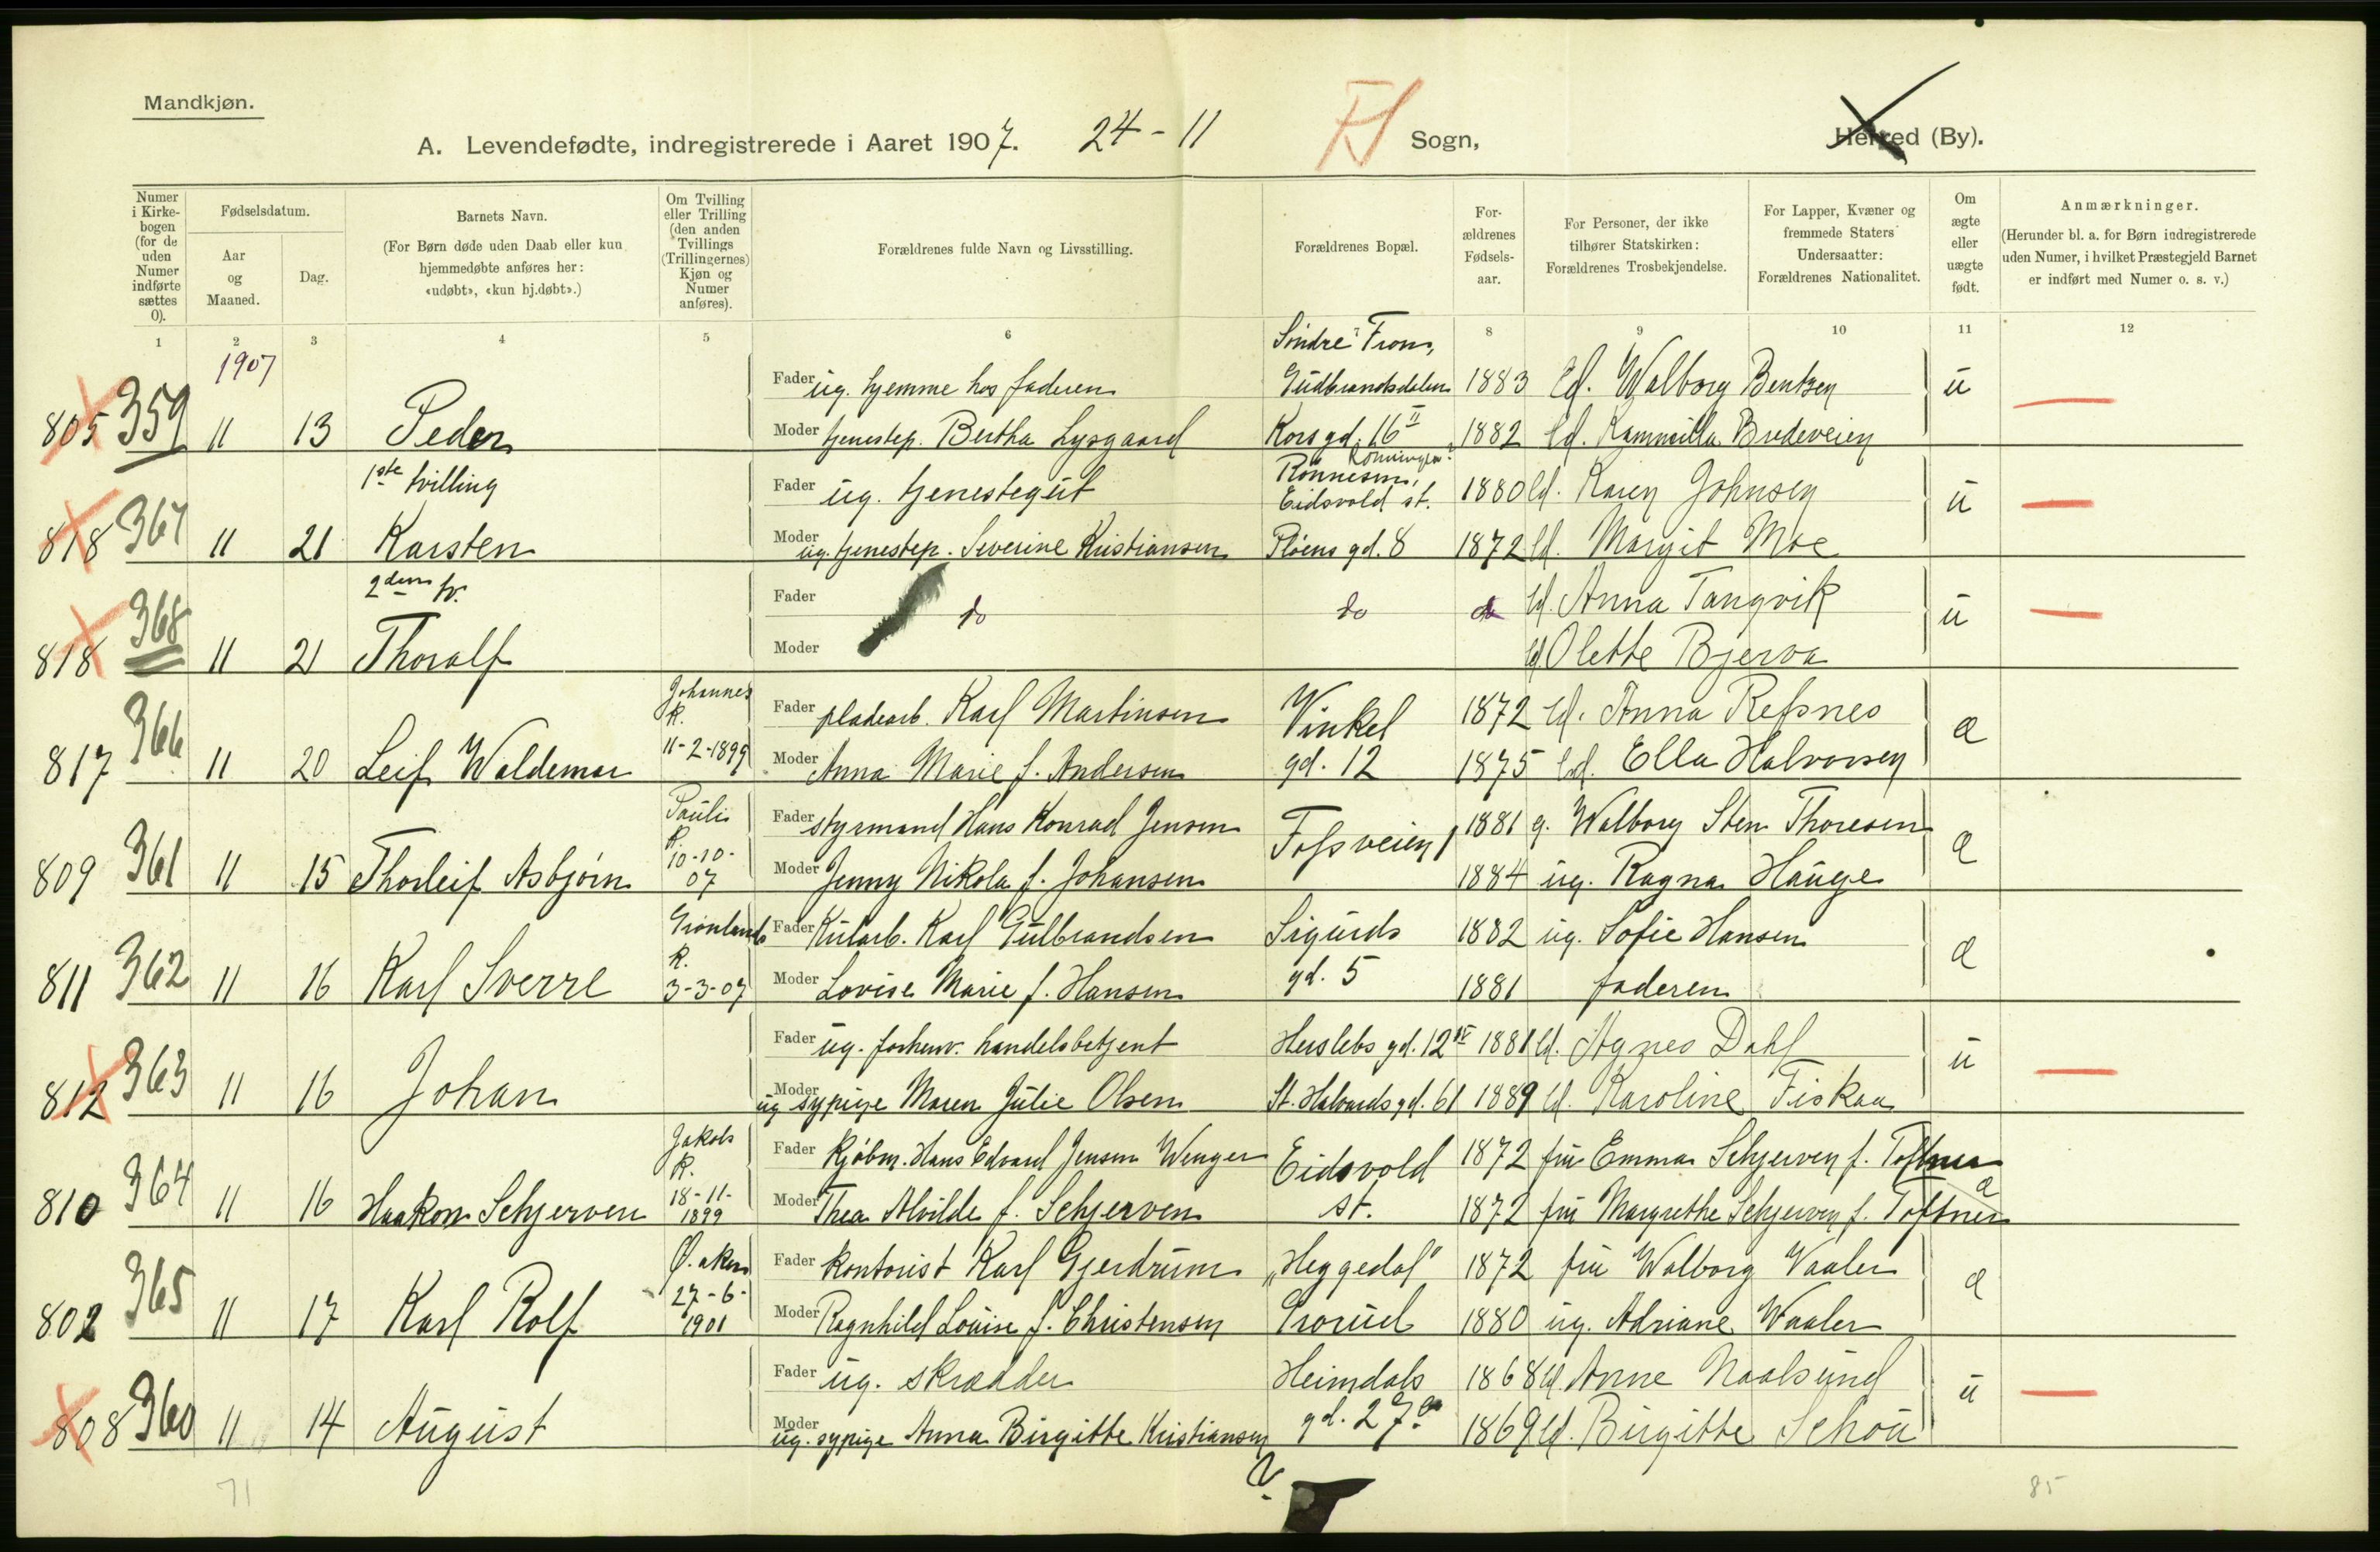 Mandkjøn.
A. Levendefødte, indregistrerede i Aaret 1907. 24-11 Sogn, Herred (By).
Numer i Kirkebogen (for de uden Numer indførte sættes 0).
Fødselsdatum.
Aar og Maaned.
Dag.
Barnets Navn.
(For Børn døde uden Daab eller kun hjemmedøbte anføres her: «udøbt», «kun hj.døbt».)
Om Tvilling eller Trilling (den anden Tvillings (Trillingernes) Kjøn og Numer anføres).
Forældrenes fulde Navn og Livsstilling.
Forældrenes Bopæl.
Forældrenes Fødselsaar.
For Personer, der ikke tilhører Statskirken: Forældrenes Trosbekjendelse.
For Lapper, Kvæner og fremmede Staters Undersaatter: Forældrenes Nationalitet.
Om ægte eller uægte født.
Anmærkninger.
(Herunder bl. a. for Børn indregistrerede uden Numer, i hvilket Præstegjeld Barnet er indført med Numer o. s. v.)
1 2 3 4 5 6 7 8 9 10 11 12
1907
Søndre Fron,
Fader ug. hjemme hos faderen Gudbrandsdalen 1883 Ed. Walborg Bentzen u
805 359 11 13 Peder Moder tjenestep. Bertha Lysgaard Korsgd. 16 II 1882 Ed. Kammilla Bredeveien
1ste tvilling Fader ug. tjenestegut Eidsvold st. 1880 Ed. Karen Johnsen u
818 367 11 21 Karsten Moder ug. tjenestep. Severine Kristiansen Pløens gd. 8 1872 Ed. Margit Moe
2den tv. Fader do do do Ed. Anna Tangvik u
818 368 11 21 Thoralf Moder Ed. Olette Bjerva
Johannes K. Fader pladearb. Karl Martinsen Vinkel 1872 Ed. Anna Refsnes æ
817 366 11 20 Leif Waldemar 11-2-1899 Moder Anna Marie f. Andersen gd. 12 1875 Ed. Ella Halvorsen
Pauli K. Fader styrmand Hans Konrad Jensen Fossveien 1 1881 g. Walborg Sten Thoresen æ
809 361 11 15 Thorleif Asbjørn 10-10-07 Moder Jenny Nikola f. Johansen 1884 ug. Ragna Hauge
Grønlands K. Fader Kularb. Karl Gulbrandsen Sigurds 1882 ug. Sofie Hansen æ
811 362 11 16 Karl Sverre 3-3-07 Moder Lovise Marie f. Hansen gd. 5 1881 faderen
Fader ug. forhenv. handelsbetjent Herslebs gd. 12 IV 1881 Ed. Agnes Dahl u
812 363 11 16 Johan Moder ug sypige Maren Julie Olsen St. Halvards gd. 61 1889 Ed. Karoline Fiskaa
Jakobs K. Fader Kjøbm. Hans Edvard Jensen Wenger Eidsvold 1872 fru Emma Schjerven f. Toftner æ
810 364 11 16 Haakon Schjerven 18-11-1899 Moder Thea Alvilde f. Schjerven st. 1872 fru Margrethe Schjerven f. Toftner
Ø. Aker Fader kontorist Karl Gjerdrum „Heggedal" 1872 fru Walborg Vaaler æ
802 365 11 17 Karl Rolf 27-6-1901 Moder Ragnhild Louise f. Christensen Grorud 1880 ug. Adriane Waaler
Fader ug. skrædder Heimdals 1868 Ed. Anne Naalsund u
808 360 11 14 August Moder ug. sypige Anna Birgitte Kristiansen gd. 27 1869 Ed. Birgitte Schou
71 85